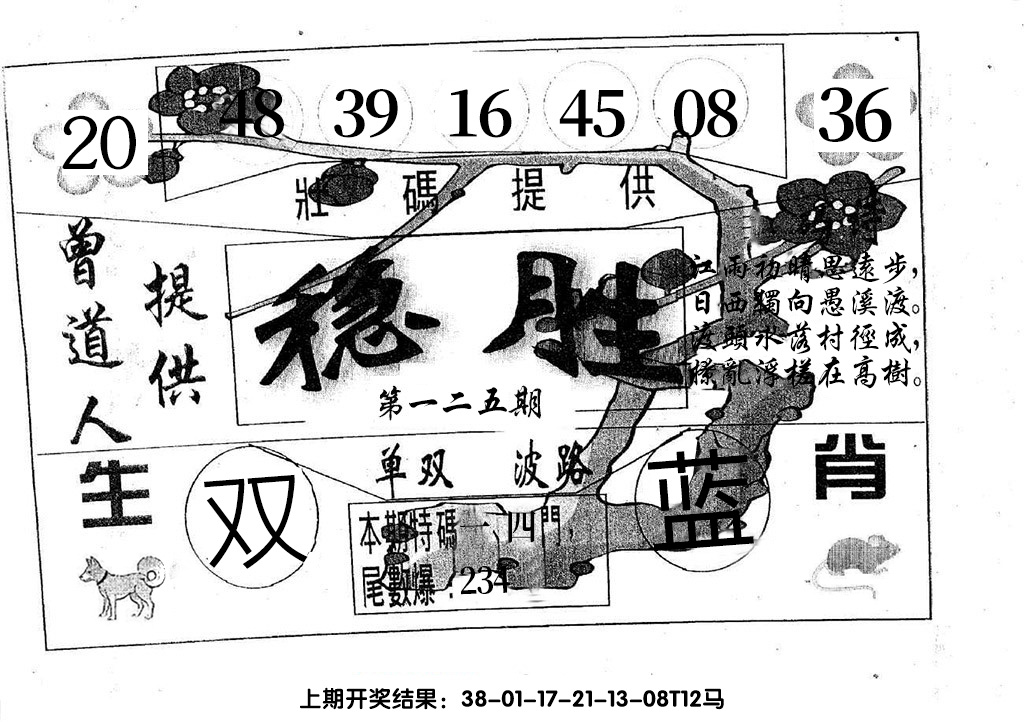 20 48 39 16 45 08 36
壯碼提供
特
曾道人
提供
稳胜
第一二五期
江雨初晴思遠步，
日西獨向愚溪渡。
渡頭水落村徑成，
撩亂浮槎在高樹。
单双 波路
生肖
双
蓝
本期特碼一、四門，
尾數爆：234
上期开奖结果：38-01-17-21-13-08T12马